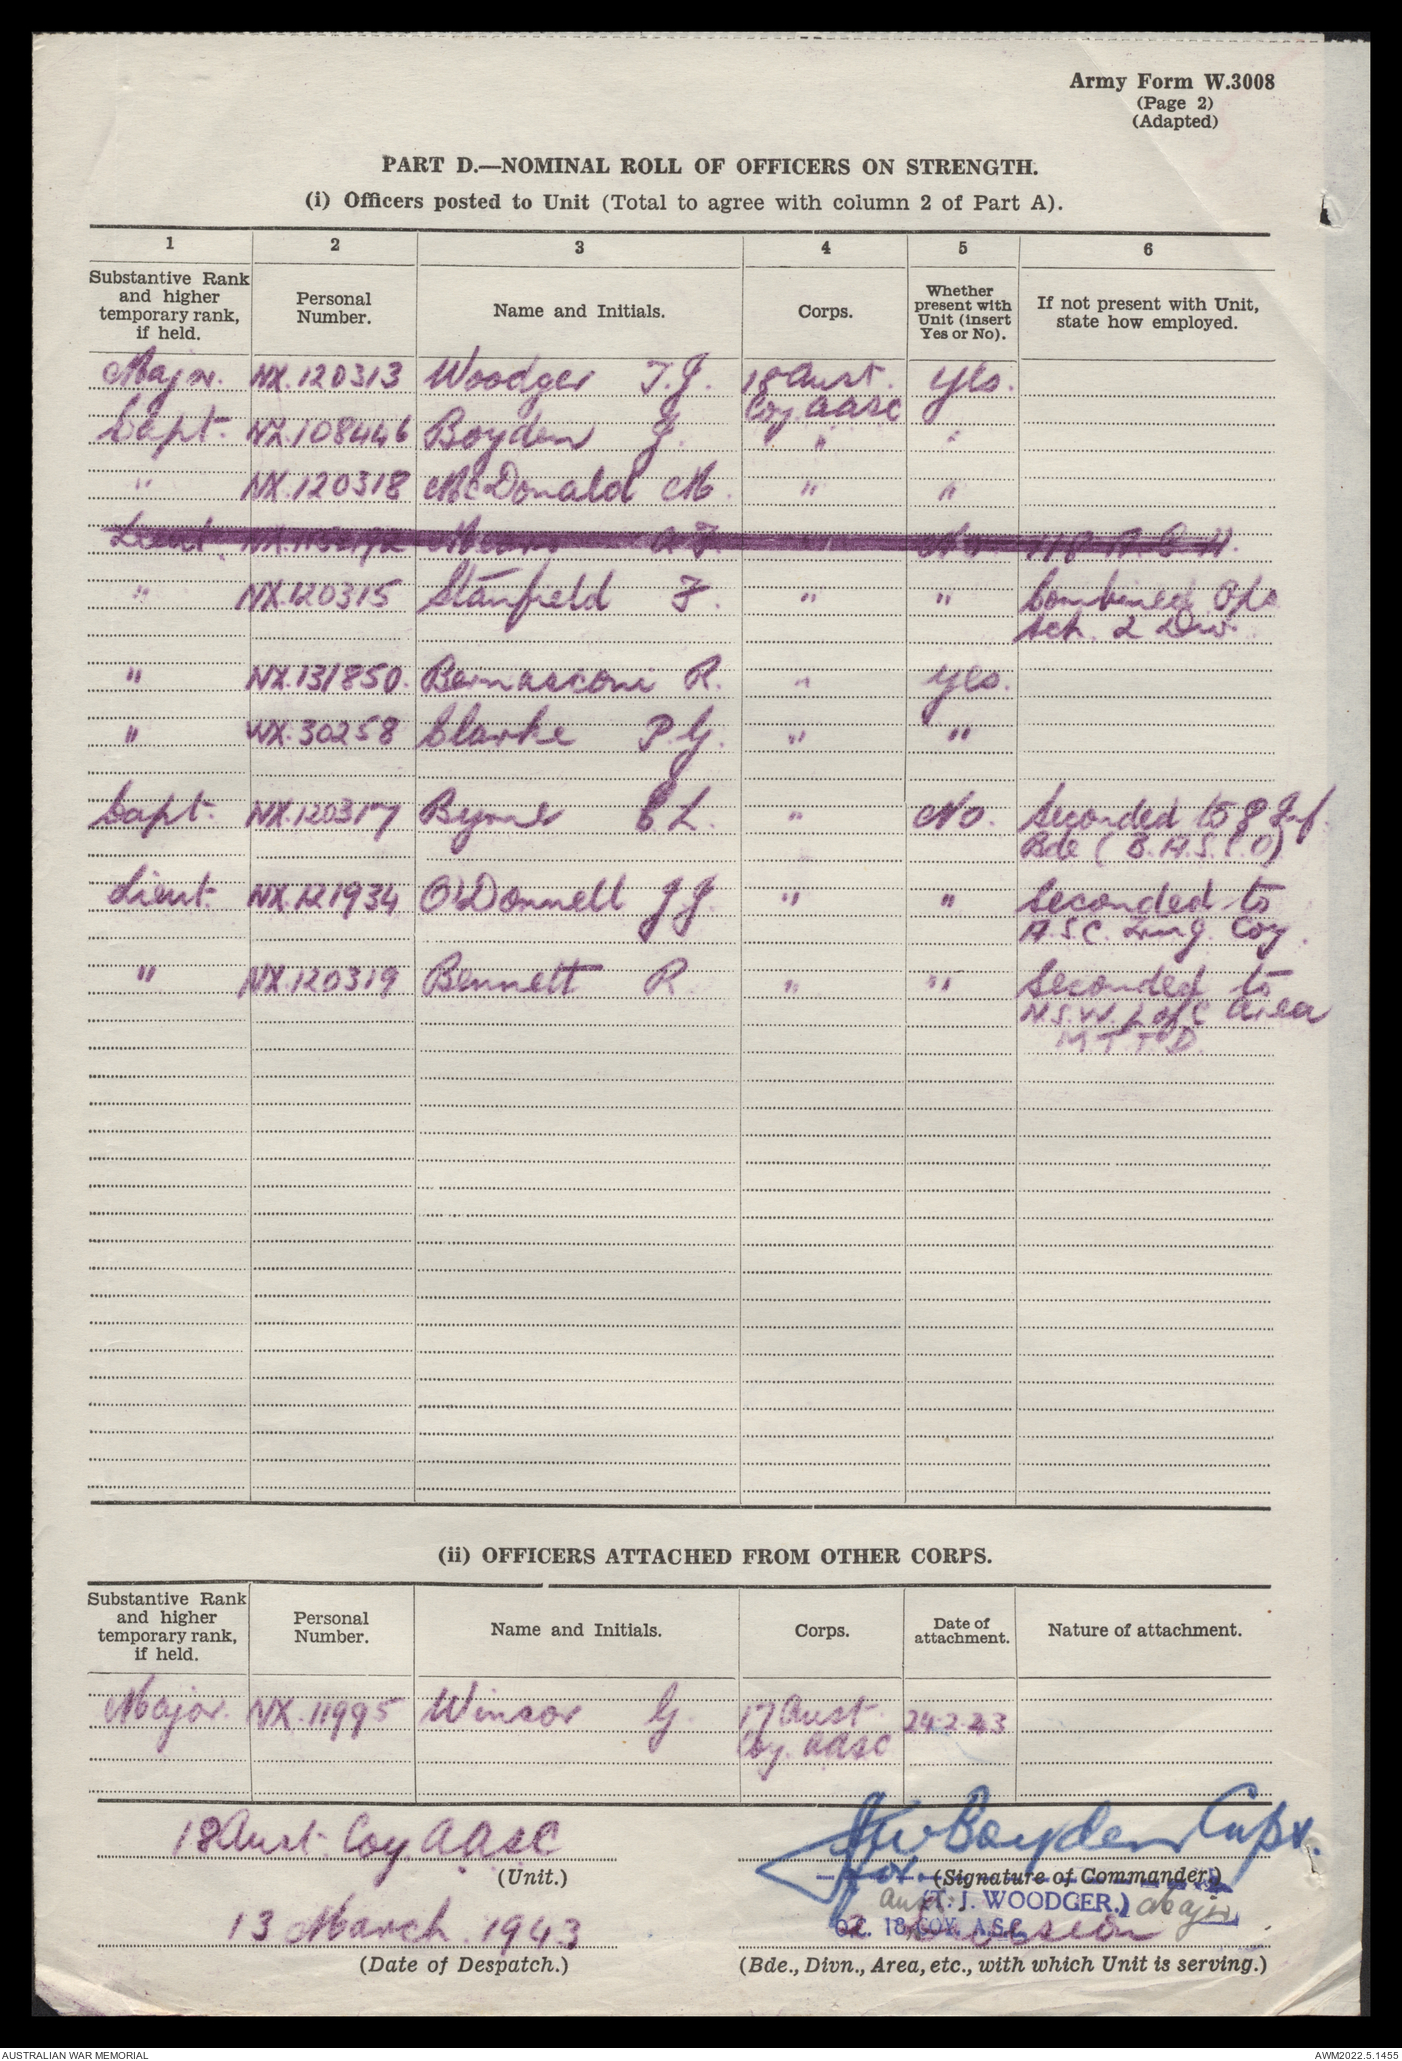 Army Form W.3008
(Page 2)
(Adapted)
PART D.—NOMINAL ROLL OF OFFICERS ON STRENGTH.
(i) Officers posted to Unit (Total to agree with column 2 of Part A).
1 2 3 4 5 6
Substantive Rank and higher temporary rank, if held. Personal Number. Name and Initials. Corps. Whether present with Unit (insert Yes or No). If not present with Unit, state how employed.
Major. NX.120313 Woodger T.J. 18 Aust. Yes.
Coy AASC
Capt. NX.108446 Boyden J. " "
" NX.120318 McDonald M. " "
Lieut. A.F. " No
" NX.120315 Stanfield F. " " Combined Ops
Sch. 2 Div.
" NX.131850. Bernasconi R. " Yes.
" WX.30258 Clarke P.G. " "
Capt. NX.120317 Byrne C L. " No. Seconded to 8 Inf.
Bde (B.A.S.C.O)
Lieut NX.121934 O'Donnell J.J. " " Seconded to
A.S.C. Trng. Coy.
" NX.120319 Bennett R " " Seconded to
N.S.W. L of C Area
M T T D.
(ii) OFFICERS ATTACHED FROM OTHER CORPS.
Substantive Rank and higher temporary rank, if held. Personal Number. Name and Initials. Corps. Date of attachment. Nature of attachment.
Major. NX.11995 Winsor G. 17 Aust. 24.2.43
Coy. AASC
18 Aust. Coy AASC Boyden Capt.
(Unit.) for (Signature of Commander.)
Aust. (T. J. WOODGER.) Major
13 March. 1943 OC. 18 COY. A.S.C.
2 Division
(Date of Despatch.) (Bde., Divn., Area, etc., with which Unit is serving.)
AUSTRALIAN WAR MEMORIAL AWM2022.5.1455